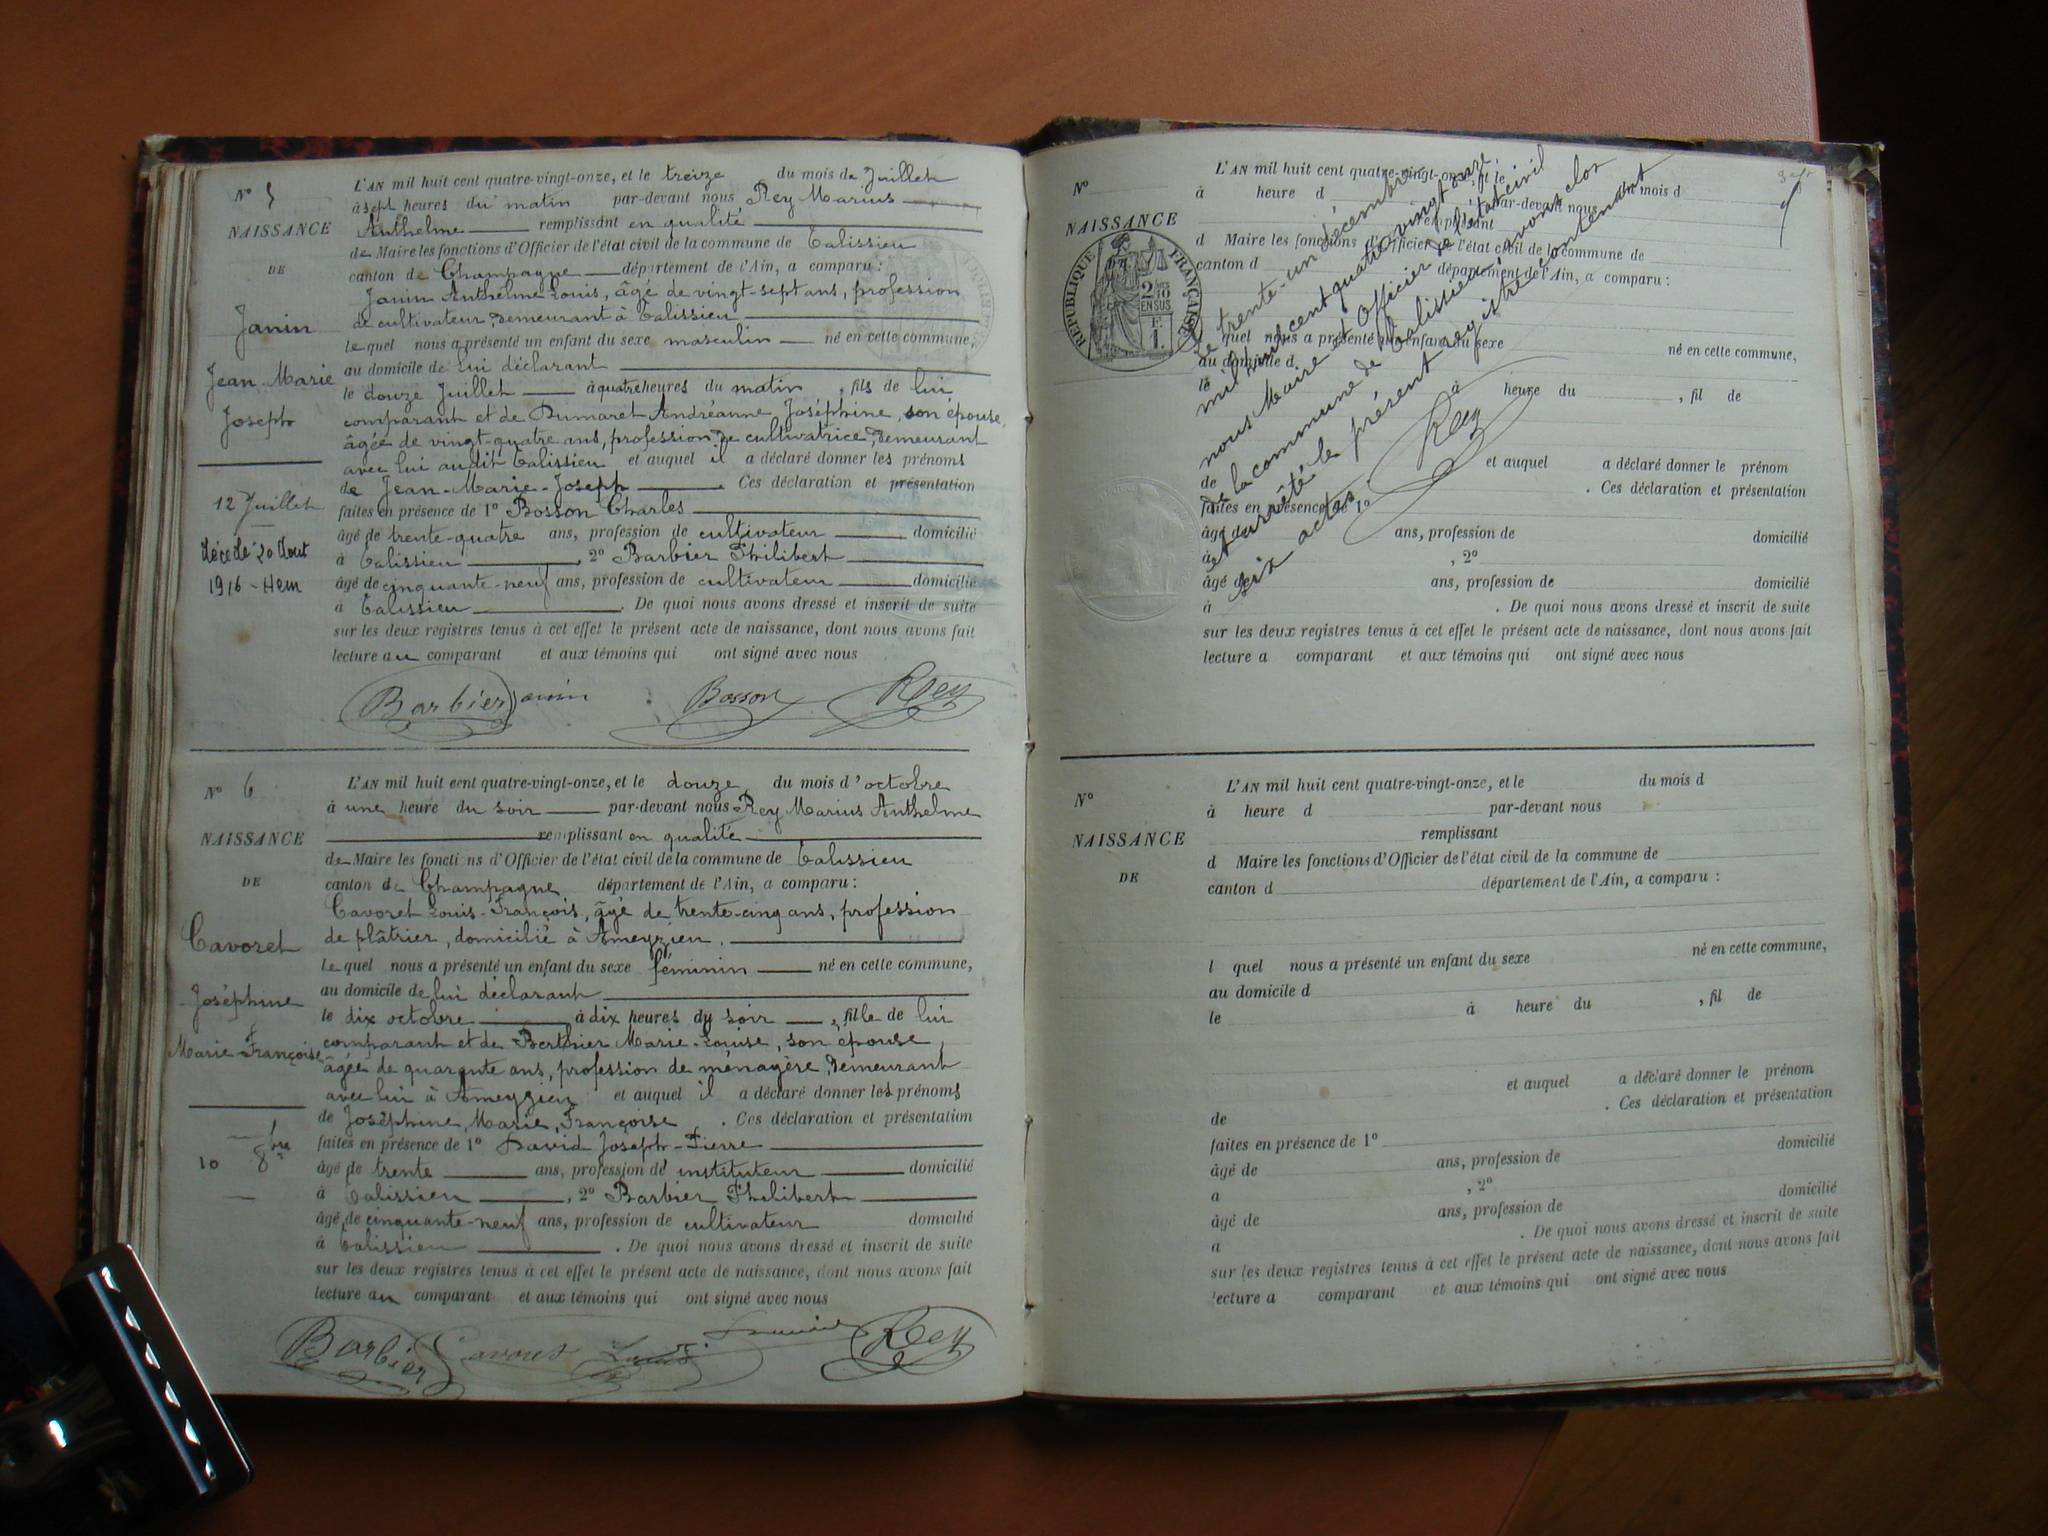 N° 5
NAISSANCE
DE
Janin
Jean-Marie
Joseph
12 Juillet
Décédé 20 Aout
1916 - Hem
L'AN mil huit cent quatre-vingt-onze, et le treize du mois de Juillet
à sept heures du matin par-devant nous Rey Marius
Anthelme remplissant en qualité
de Maire les fonctions d'Officier de l'état civil de la commune de Talissieu
canton de Champagne département de l'Ain, a comparu :
Janin Anthelme Louis, âgé de vingt-sept ans, profession
de cultivateur, demeurant à Talissieu
lequel nous a présenté un enfant du sexe masculin né en cette commune,
au domicile de lui déclarant
le douze Juillet à quatre heures du matin, fils de lui
comparant et de Dumaret Andréanne Joséphine, son épouse,
âgée de vingt-quatre ans, profession de cultivatrice, demeurant
avec lui audit Talissieu et auquel il a déclaré donner les prénoms
de Jean-Marie-Joseph. Ces déclaration et présentation
faites en présence de 1° Bosson Charles
âgé de trente-quatre ans, profession de cultivateur domicilié
à Talissieu, 2° Barbier Philibert
âgé de cinquante-neuf ans, profession de cultivateur domicilié
à Talissieu. De quoi nous avons dressé et inscrit de suite
sur les deux registres tenus à cet effet le présent acte de naissance, dont nous avons fait
lecture au comparant et aux témoins qui ont signé avec nous
Barbier Janin Bosson Rey
N° 6
NAISSANCE
DE
Cavoret
Joséphine
Marie-Françoise
10 8bre
L'AN mil huit cent quatre-vingt-onze, et le douze du mois d'octobre
à une heure du soir par-devant nous Rey Marius Anthelme
remplissant en qualité
de Maire les fonctions d'Officier de l'état civil de la commune de Talissieu
canton de Champagne département de l'Ain, a comparu :
Cavoret Louis-François, âgé de trente-cinq ans, profession
de plâtrier, domicilié à Ameyzieu.
lequel nous a présenté un enfant du sexe féminin né en cette commune,
au domicile de lui déclarant
le dix octobre à dix heures du soir, fille de lui
comparant et de Berthier Marie-Louise, son épouse,
âgée de quarante ans, profession de ménagère, demeurant
avec lui à Ameyzieu et auquel il a déclaré donner les prénoms
de Joséphine, Marie, Françoise. Ces déclaration et présentation
faites en présence de 1° David Joseph-Pierre
âgé de trente ans, profession de instituteur domicilié
à Talissieu, 2° Barbier Philibert
âgé de cinquante-neuf ans, profession de cultivateur domicilié
à Talissieu. De quoi nous avons dressé et inscrit de suite
sur les deux registres tenus à cet effet le présent acte de naissance, dont nous avons fait
lecture au comparant et aux témoins qui ont signé avec nous
Barbier Cavoret Louis David Rey
N°
NAISSANCE
REPUBLIQUE FRANÇAISE
2/10 EN SUS
F. 1.
L'AN mil huit cent quatre-vingt-onze, et le du mois d
à heure d par-devant nous
remplissant
d Maire les fonctions d'Officier de l'état civil de la commune de
canton d département de l'Ain, a comparu :
l quel nous a présenté un enfant du sexe né en cette commune,
au domicile d
le à heure du , fil de
et auquel a déclaré donner le prénom
de . Ces déclaration et présentation
faites en présence de 1°
âgé de ans, profession de domicilié
à , 2°
âgé de ans, profession de domicilié
à . De quoi nous avons dressé et inscrit de suite
sur les deux registres tenus à cet effet le présent acte de naissance, dont nous avons fait
lecture a comparant et aux témoins qui ont signé avec nous
Le trente-un décembre
mil huit cent quatre vingt onze
nous Maire et Officier de l'état civil
de la commune de Talissieu, avons clos
et arrêté le présent registre contenant
six actes.
Rey
N°
NAISSANCE
DE
L'AN mil huit cent quatre-vingt-onze, et le du mois d
à heure d par-devant nous
remplissant
d Maire les fonctions d'Officier de l'état civil de la commune de
canton d département de l'Ain, a comparu :
l quel nous a présenté un enfant du sexe né en cette commune,
au domicile d
le à heure du , fil de
et auquel a déclaré donner le prénom
de . Ces déclaration et présentation
faites en présence de 1°
âgé de ans, profession de domicilié
a , 2°
âgé de ans, profession de domicilié
a . De quoi nous avons dressé et inscrit de suite
sur les deux registres tenus à cet effet le présent acte de naissance, dont nous avons fait
lecture a comparant et aux témoins qui ont signé avec nous